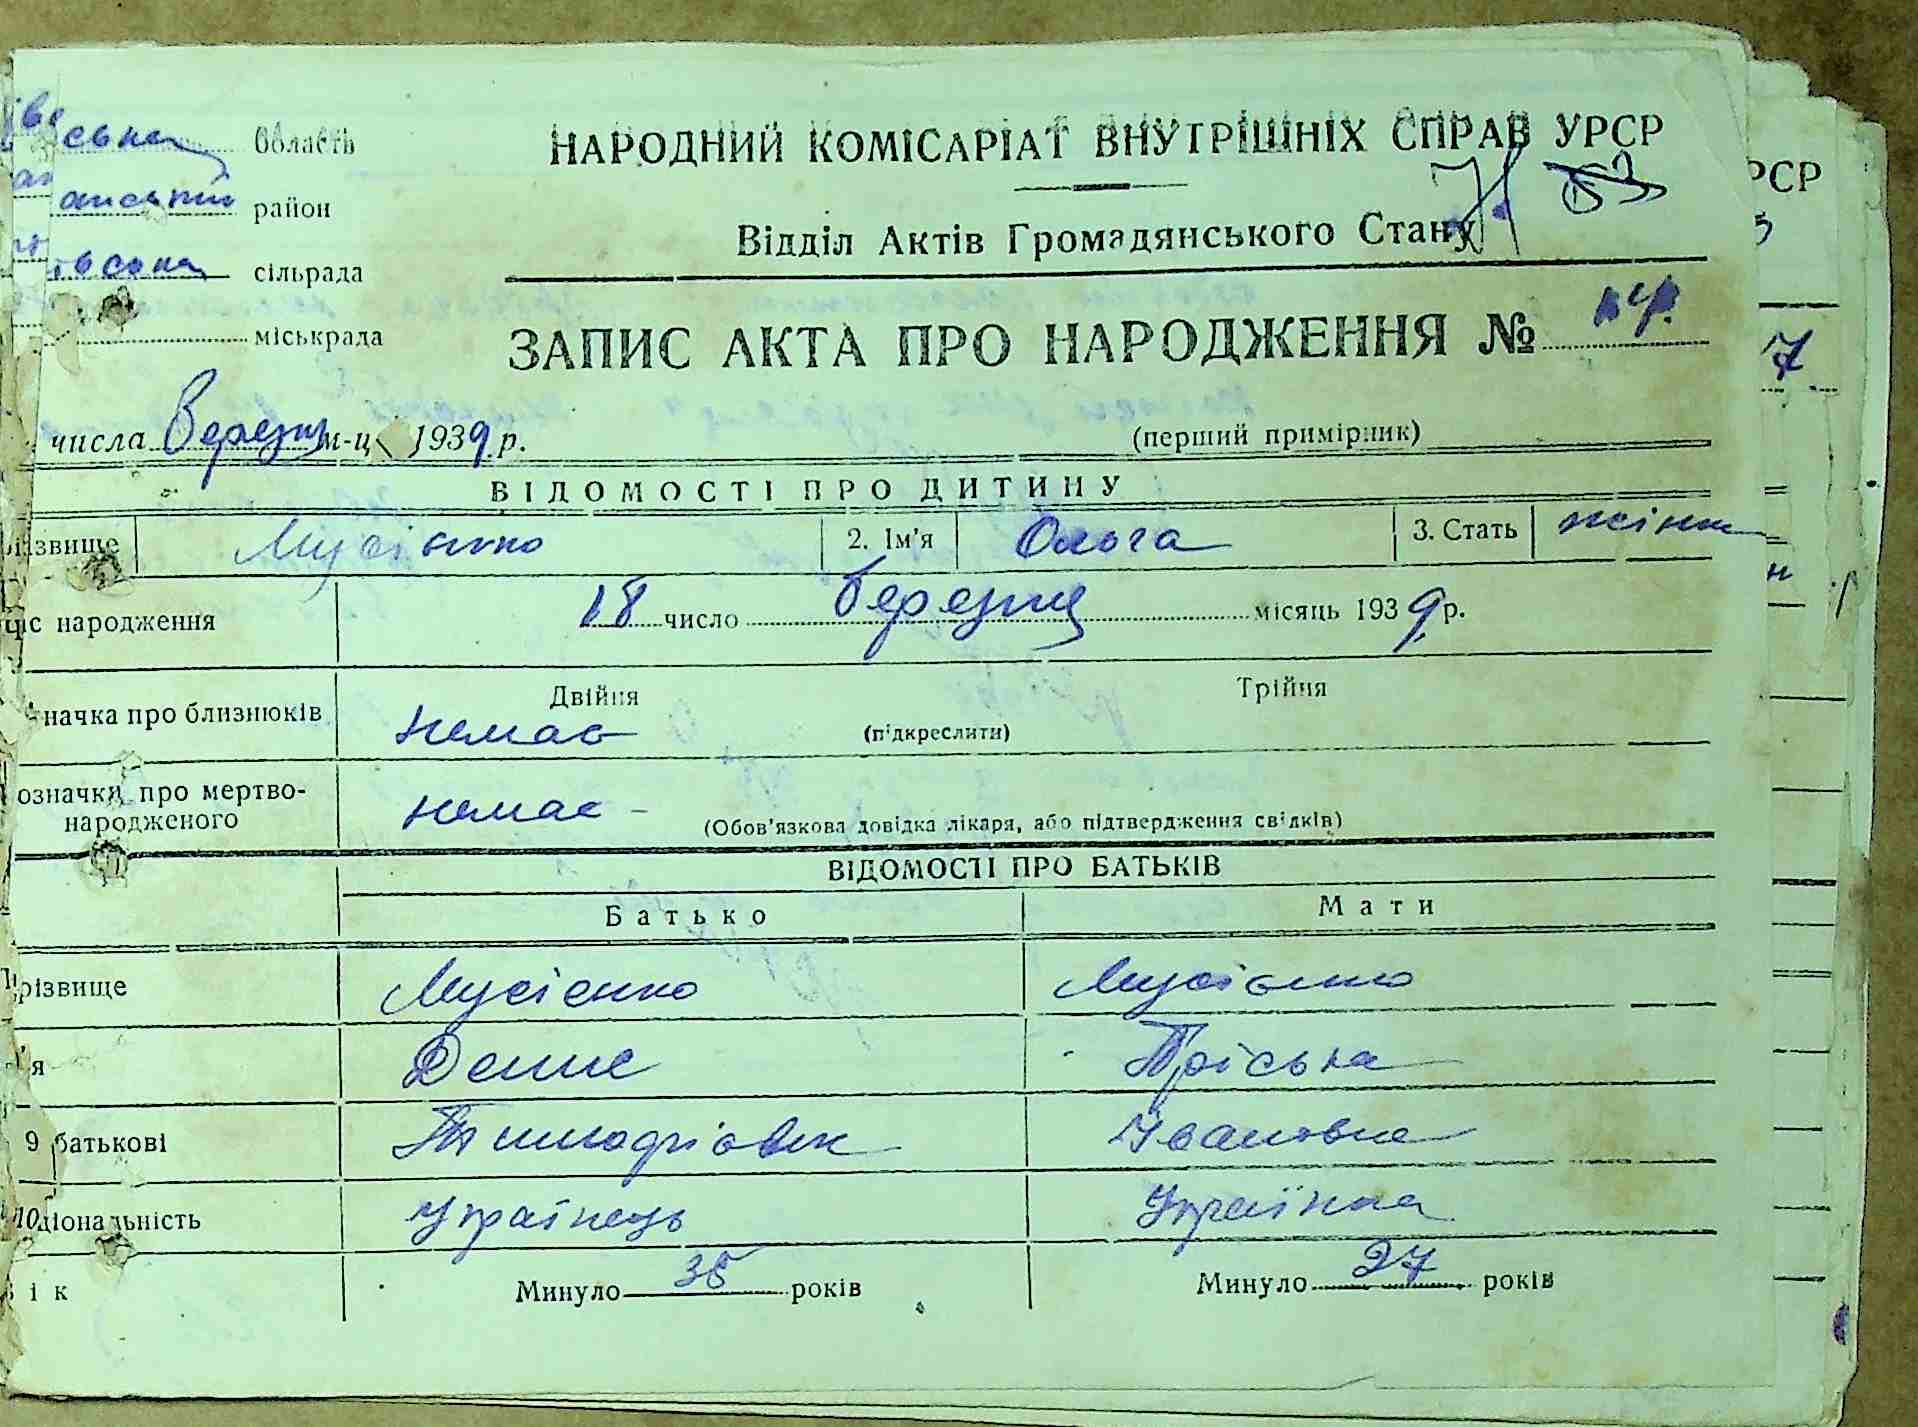 ська область
НАРОДНИЙ КОМІСАРІАТ ВНУТРІШНІХ СПРАВ УРСР
анський район
Відділ Актів Громадянського Стану
сільрада
міськрада
ЗАПИС АКТА ПРО НАРОДЖЕННЯ №
числа Березня м-ця 1939 р.
(перший примірник)
ВІДОМОСТІ ПРО ДИТИНУ
різвище Мусієнко 2. Ім'я Ольга 3. Стать жіноч
час народження 18 число березня місяць 1939 р.
начка про близнюків Двійня Трійня
немає (підкреслити)
означка про мертво-
народженого немає - (Обов'язкова довідка лікаря, або підтвердження свідків)
ВІДОМОСТІ ПРО БАТЬКІВ
Батько Мати
різвище Мусієнко Мусієнко
'я Денис Пріська
9 батькові Тимофіович Івановна
10 ціональність Українець Українка
в і к Минуло 35 років Минуло 27 років
РСР
3
7
н